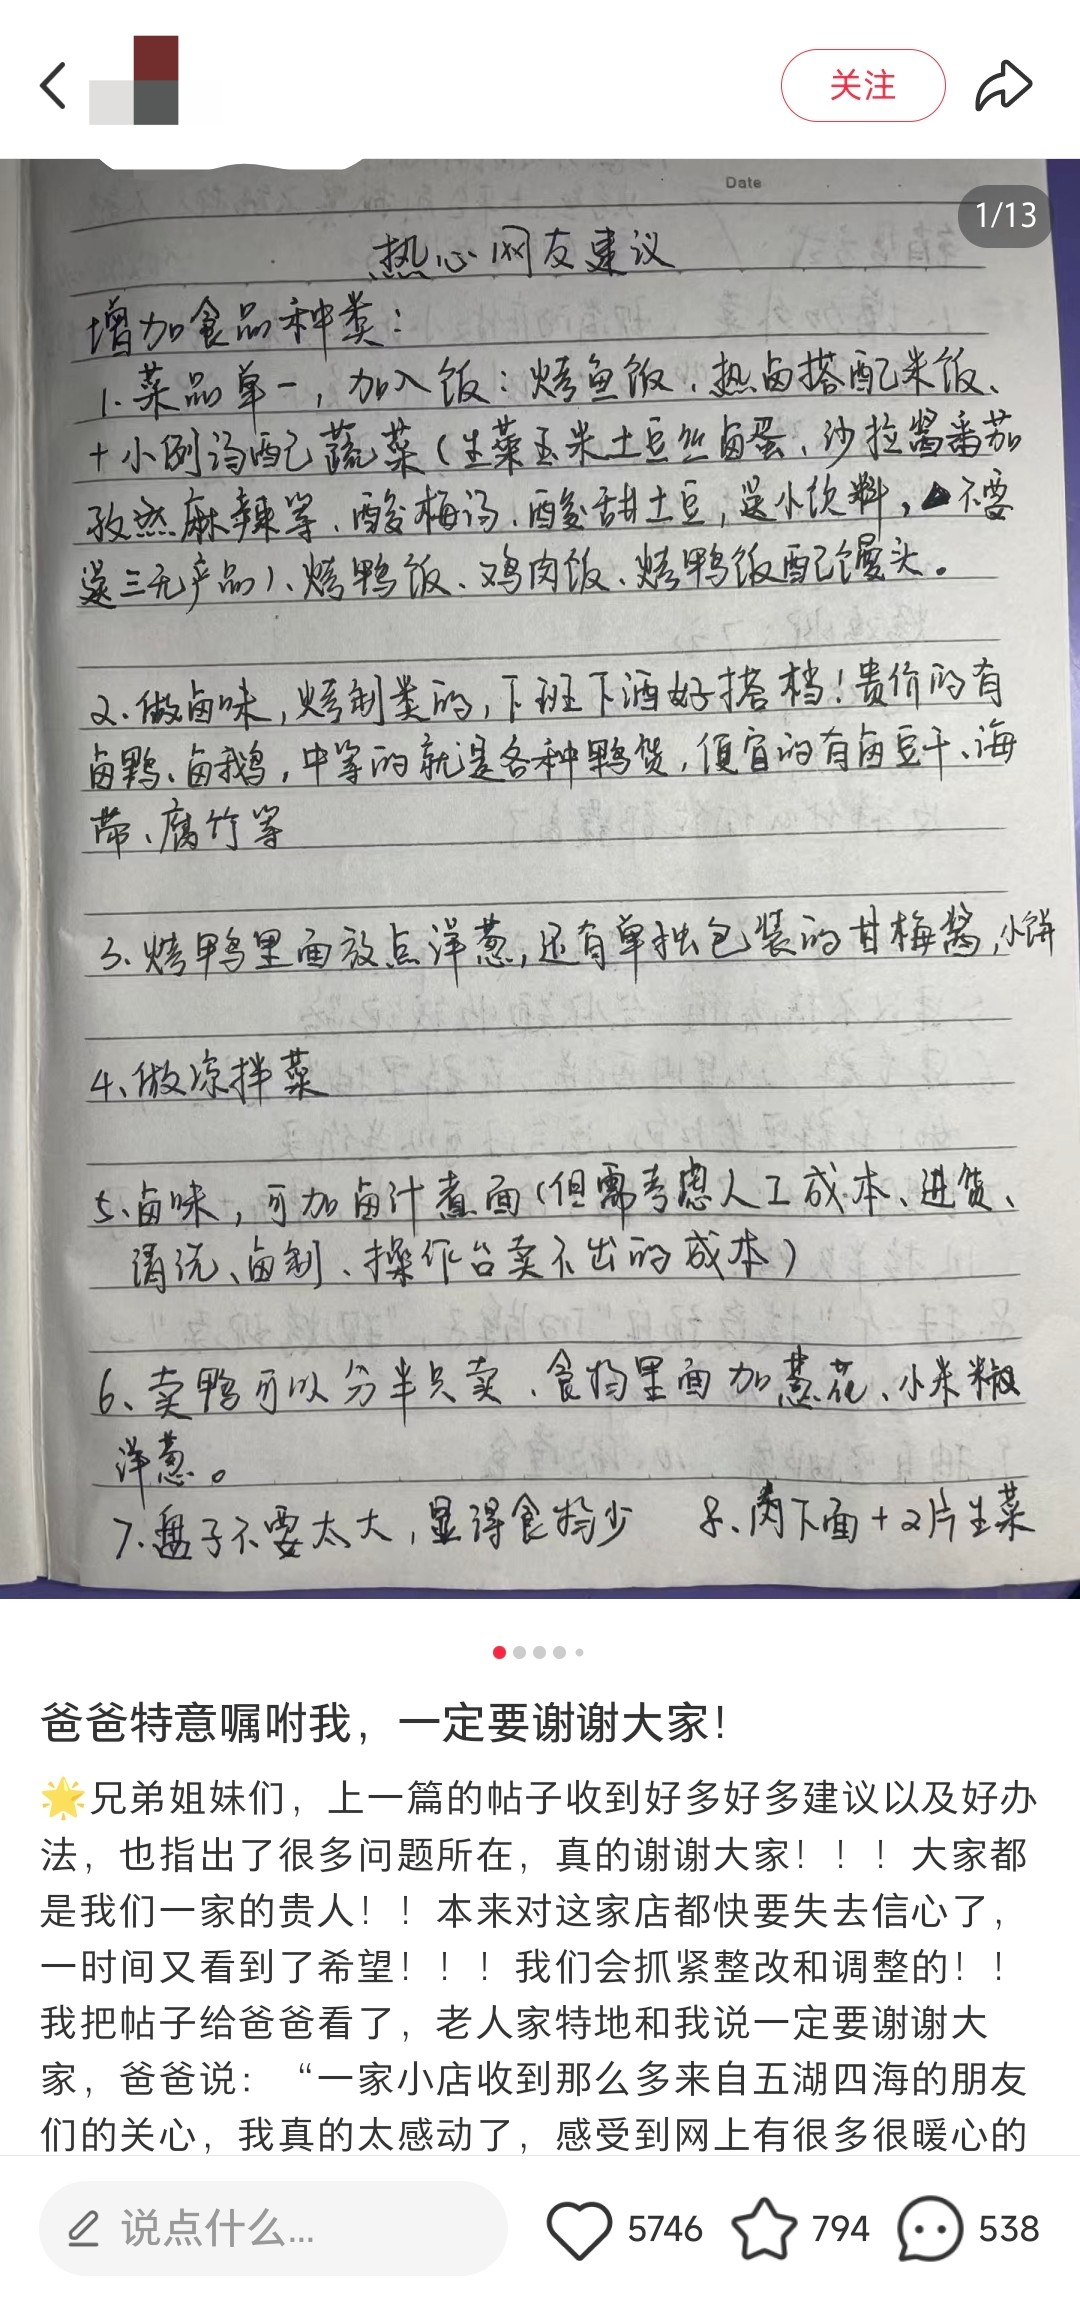 关注
Date
1/13
热心网友建议
增加食品种类：
1.菜品单一，加入饭：烤鱼饭、热卤搭配米饭、
+小例汤配蔬菜（生菜玉米土豆丝卤蛋、沙拉酱番茄
孜然麻辣等、酸梅汤、酸甜土豆，送小饮料，不要
送三无产品）、烤鸭饭、鸡肉饭、烤鸭饭配馒头。
2.做卤味，烤制类的，下班下酒好搭档！贵价的有
卤鸭、卤鹅，中等的就是各种鸭货，便宜的有卤豆干、海
带、腐竹等
3.烤鸭里面放点洋葱，还有单独包装的甘梅酱，小饼
4、做凉拌菜
5、卤味，可加卤汁煮面（但需考虑人工成本、进货、
清洗、卤制、操作台卖不出的成本）
6、卖鸭可以分半只卖、食物里面加葱花、小米椒
洋葱。
7.盘子不要太大，显得食物少 8、肉下面+2片生菜
爸爸特意嘱咐我，一定要谢谢大家！
🌟兄弟姐妹们，上一篇的帖子收到好多好多建议以及好办
法，也指出了很多问题所在，真的谢谢大家！！！大家都
是我们一家的贵人！！本来对这家店都快要失去信心了，
一时间又看到了希望！！！我们会抓紧整改和调整的！！
我把帖子给爸爸看了，老人家特地和我说一定要谢谢大
家，爸爸说：“一家小店收到那么多来自五湖四海的朋友
们的关心，我真的太感动了，感受到网上有很多很暖心的
说点什么...
5746
794
538